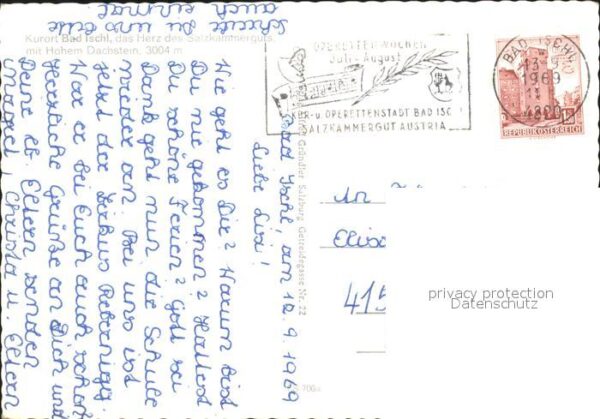 Kurort Bad Ischl, das Herz des Salzkammerguts,
mit Hohem Dachstein, 3004 m
OPERETTENWOCHEN
Juli - August
KUR- u. OPERETTENSTADT BAD ISCHL
SALZKAMMERGUT AUSTRIA
BAD ISCHL
13.-9.
1969
11
4820
REPUBLIK ÖSTERREICH
Bad Ischl, am 12.9.1969
Liebe Lisi!
Wie geht es Dir? Warum bist
Du nie gekommen? Hattest
Du schöne Ferien? Gott sei
Dank geht nun die Schule
wieder an. Bei uns ist
jetzt der Zirkus Rebernigg
War er bei Euch auch schon?
Herzliche Grüße an Dich und
Deine lb. Eltern senden
Christa u. Eltern
Schreibe Du uns bitte
auch einmal
Gründler Salzburg Getreidegasse Nr. 22
An
Elisa
415
706
privacy protection
Datenschutz